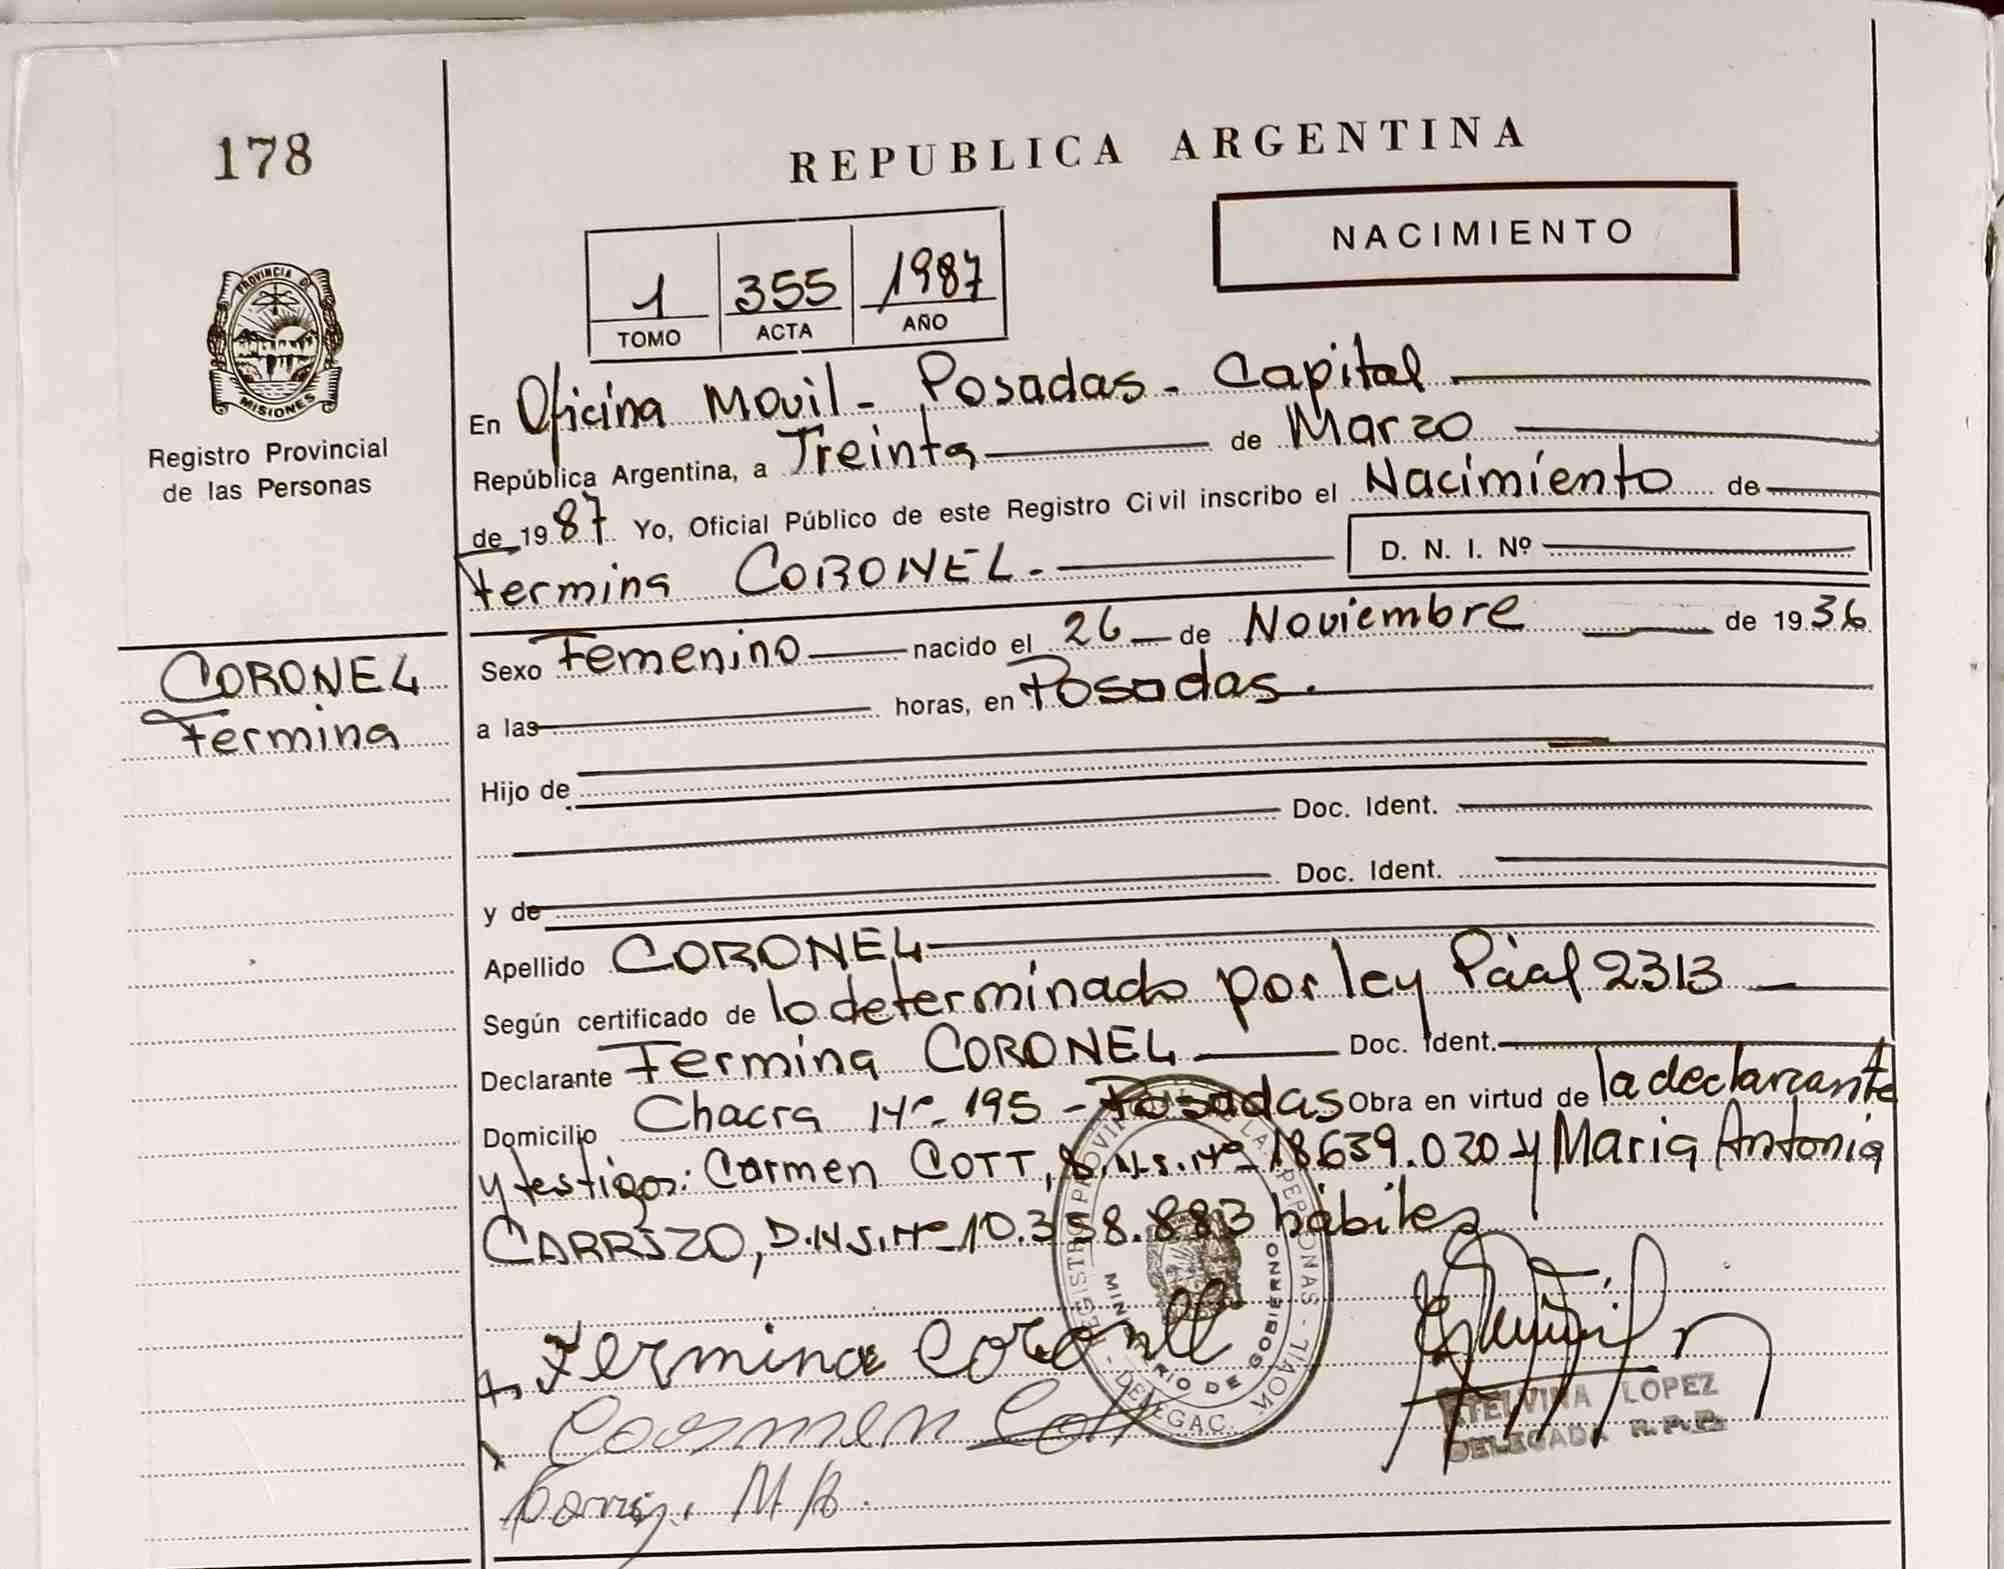 178
REPUBLICA ARGENTINA
NACIMIENTO
1 355 1987
TOMO ACTA AÑO
PROVINCIA DE
MISIONES
Registro Provincial
de las Personas
En Oficina Movil - Posadas - Capital
República Argentina, a Treinta de Marzo
de 1987 Yo, Oficial Público de este Registro Civil inscribo el Nacimiento de
Fermina CORONEL.- D. N. I. Nº
CORONEL
Fermina
Sexo Femenino nacido el 26 de Noviembre de 1936
a las horas, en Posadas.
Hijo de
Doc. Ident.
y de Doc. Ident.
Apellido CORONEL
Según certificado de lo determinado por ley P&aacute;al 2313
Declarante Fermina CORONEL Doc. Ident.
Domicilio Chacra Nº 195 - Posadas Obra en virtud de la declarante
y testigos: Carmen COTT, D.N.I. Nº 18.639.020 y Maria Antonia
CARRIZO, D.N.I. Nº 10.358.883 hábiles
Fermina Coronel
Carmen Cott
M A.
REGISTRO PROVINCIAL DE LAS PERSONAS - DELEGAC. MOVIL
MINISTERIO DE GOBIERNO
ETELVINA LOPEZ
DELEGADA R.P.P.